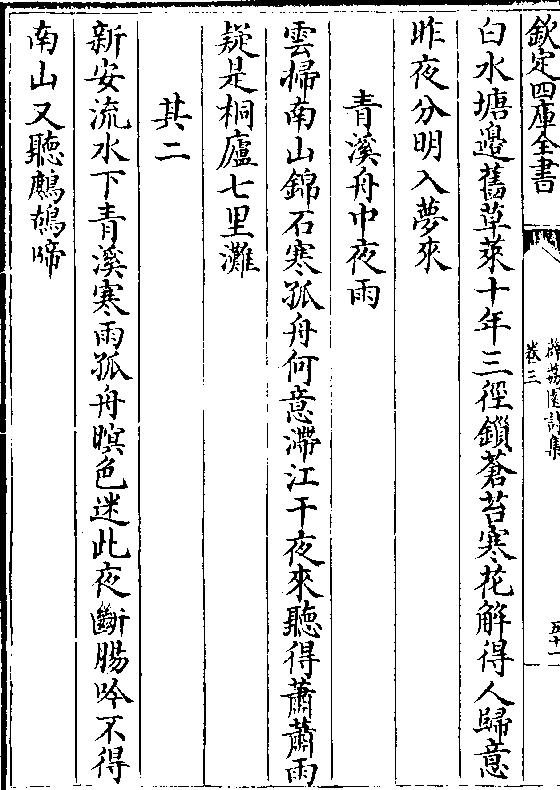 欽定四庫全書
薜荔園詩集
卷三
白水塘邉舊草萊十年三徑鎖蒼苔寒花解得人歸意
昨夜分明入夢來
青溪舟中夜雨
雲掃南山錦石寒孤舟何意滯江干夜來聽得蕭蕭雨
疑是桐廬七里灘
其二
新安流水下青溪寒雨孤舟暝色迷此夜斷腸吟不得
南山又聽鷓鴣啼